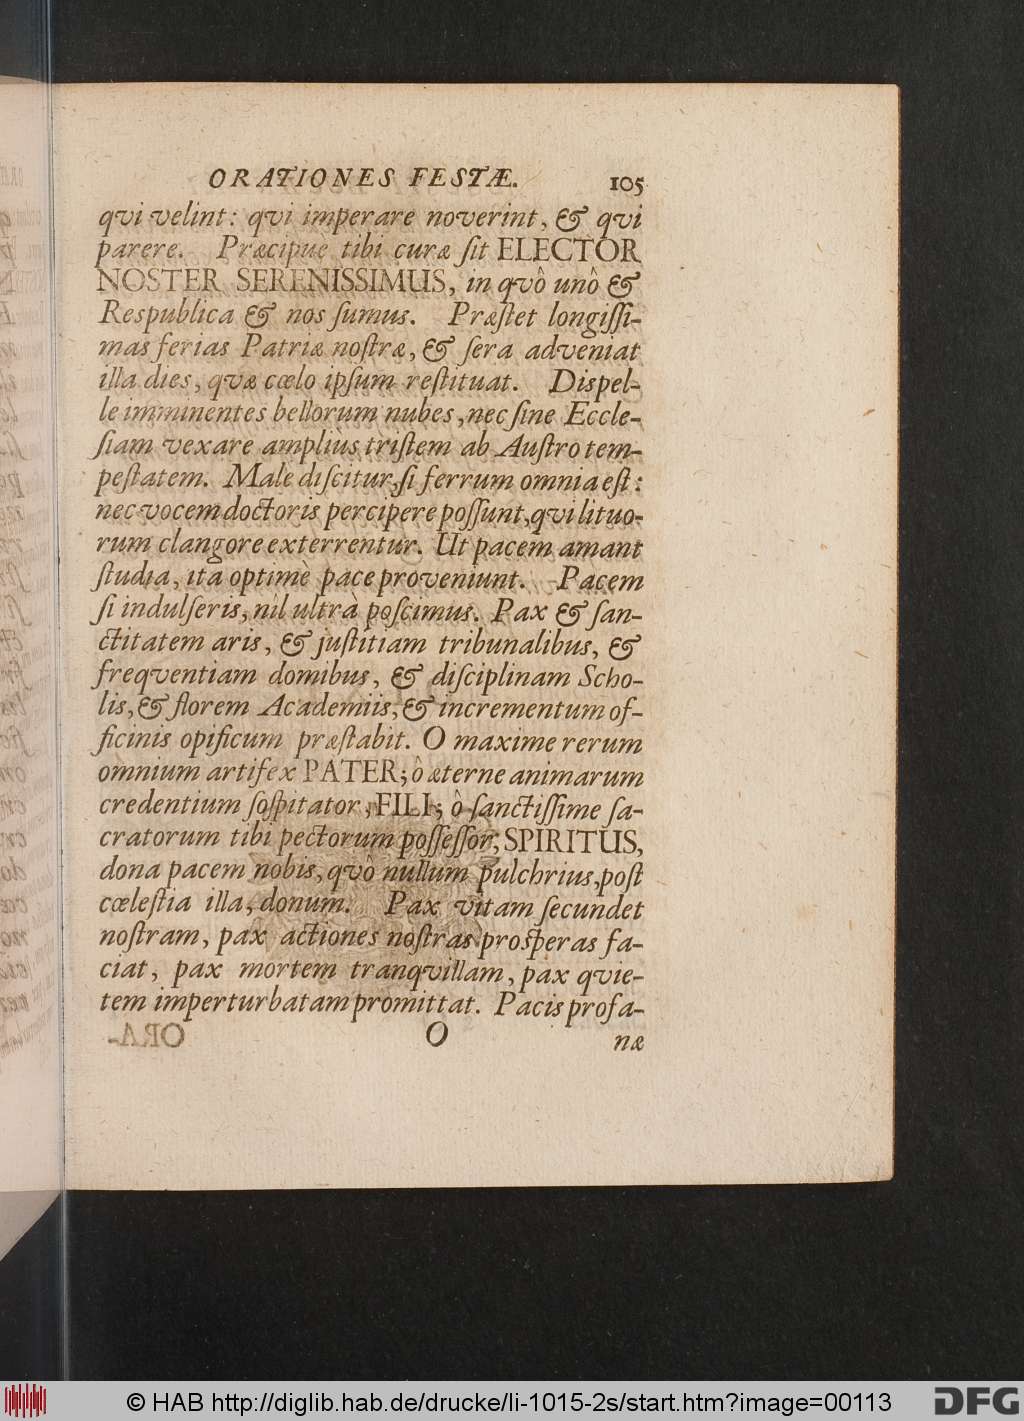 ORATIONES FESTÆ. 105
qvi velint: qvi imperare noverint, & qvi
parere. Præcipue tibi curæ ſit ELECTOR
NOSTER SERENISSIMUS, in qvô unô &
Respublica & nos ſumus. Præſtet longiſſi-
mas ferias Patriæ noſtræ, & ſera adveniat
illa dies, qvæ cœlo ipſum reſtituat. Dispel-
le imminentes bellorum nubes, nec ſine Eccle-
ſiam vexare ampliùs triſtem ab Auſtro tem-
peſtatem. Malè diſcitur, ſi ferrum omnia eſt:
nec vocem doctoris percipere poſſunt, qvi lituo-
rum clangore exterrentur. Ut pacem amant
ſtudia, ita optimè pace proveniunt. Pacem
ſi indulſeris, nil ultrà poſcimus. Pax & ſan-
ctitatem aris, & juſtitiam tribunalibus, &
freqventiam domibus, & diſciplinam Scho-
lis, & florem Academiis, & incrementum of-
ficinis opificum præſtabit. O maxime rerum
omnium artifex PATER; ô æterne animarum
credentium ſoſpitator, FILI; ô ſanctiſſime ſa-
cratorum tibi pectorum poſſeſſor, SPIRITUS,
dona pacem nobis, qvô nullum pulchrius, poſt
cœleſtia illa, donum. Pax vitam ſecundet
noſtram, pax actiones noſtras proſperas fa-
ciat, pax mortem tranqvillam, pax qvie-
tem imperturbatam promittat. Pacis profa-
O næ
ORA-
© HAB http://diglib.hab.de/drucke/li-1015-2s/start.htm?image=00113 DFG